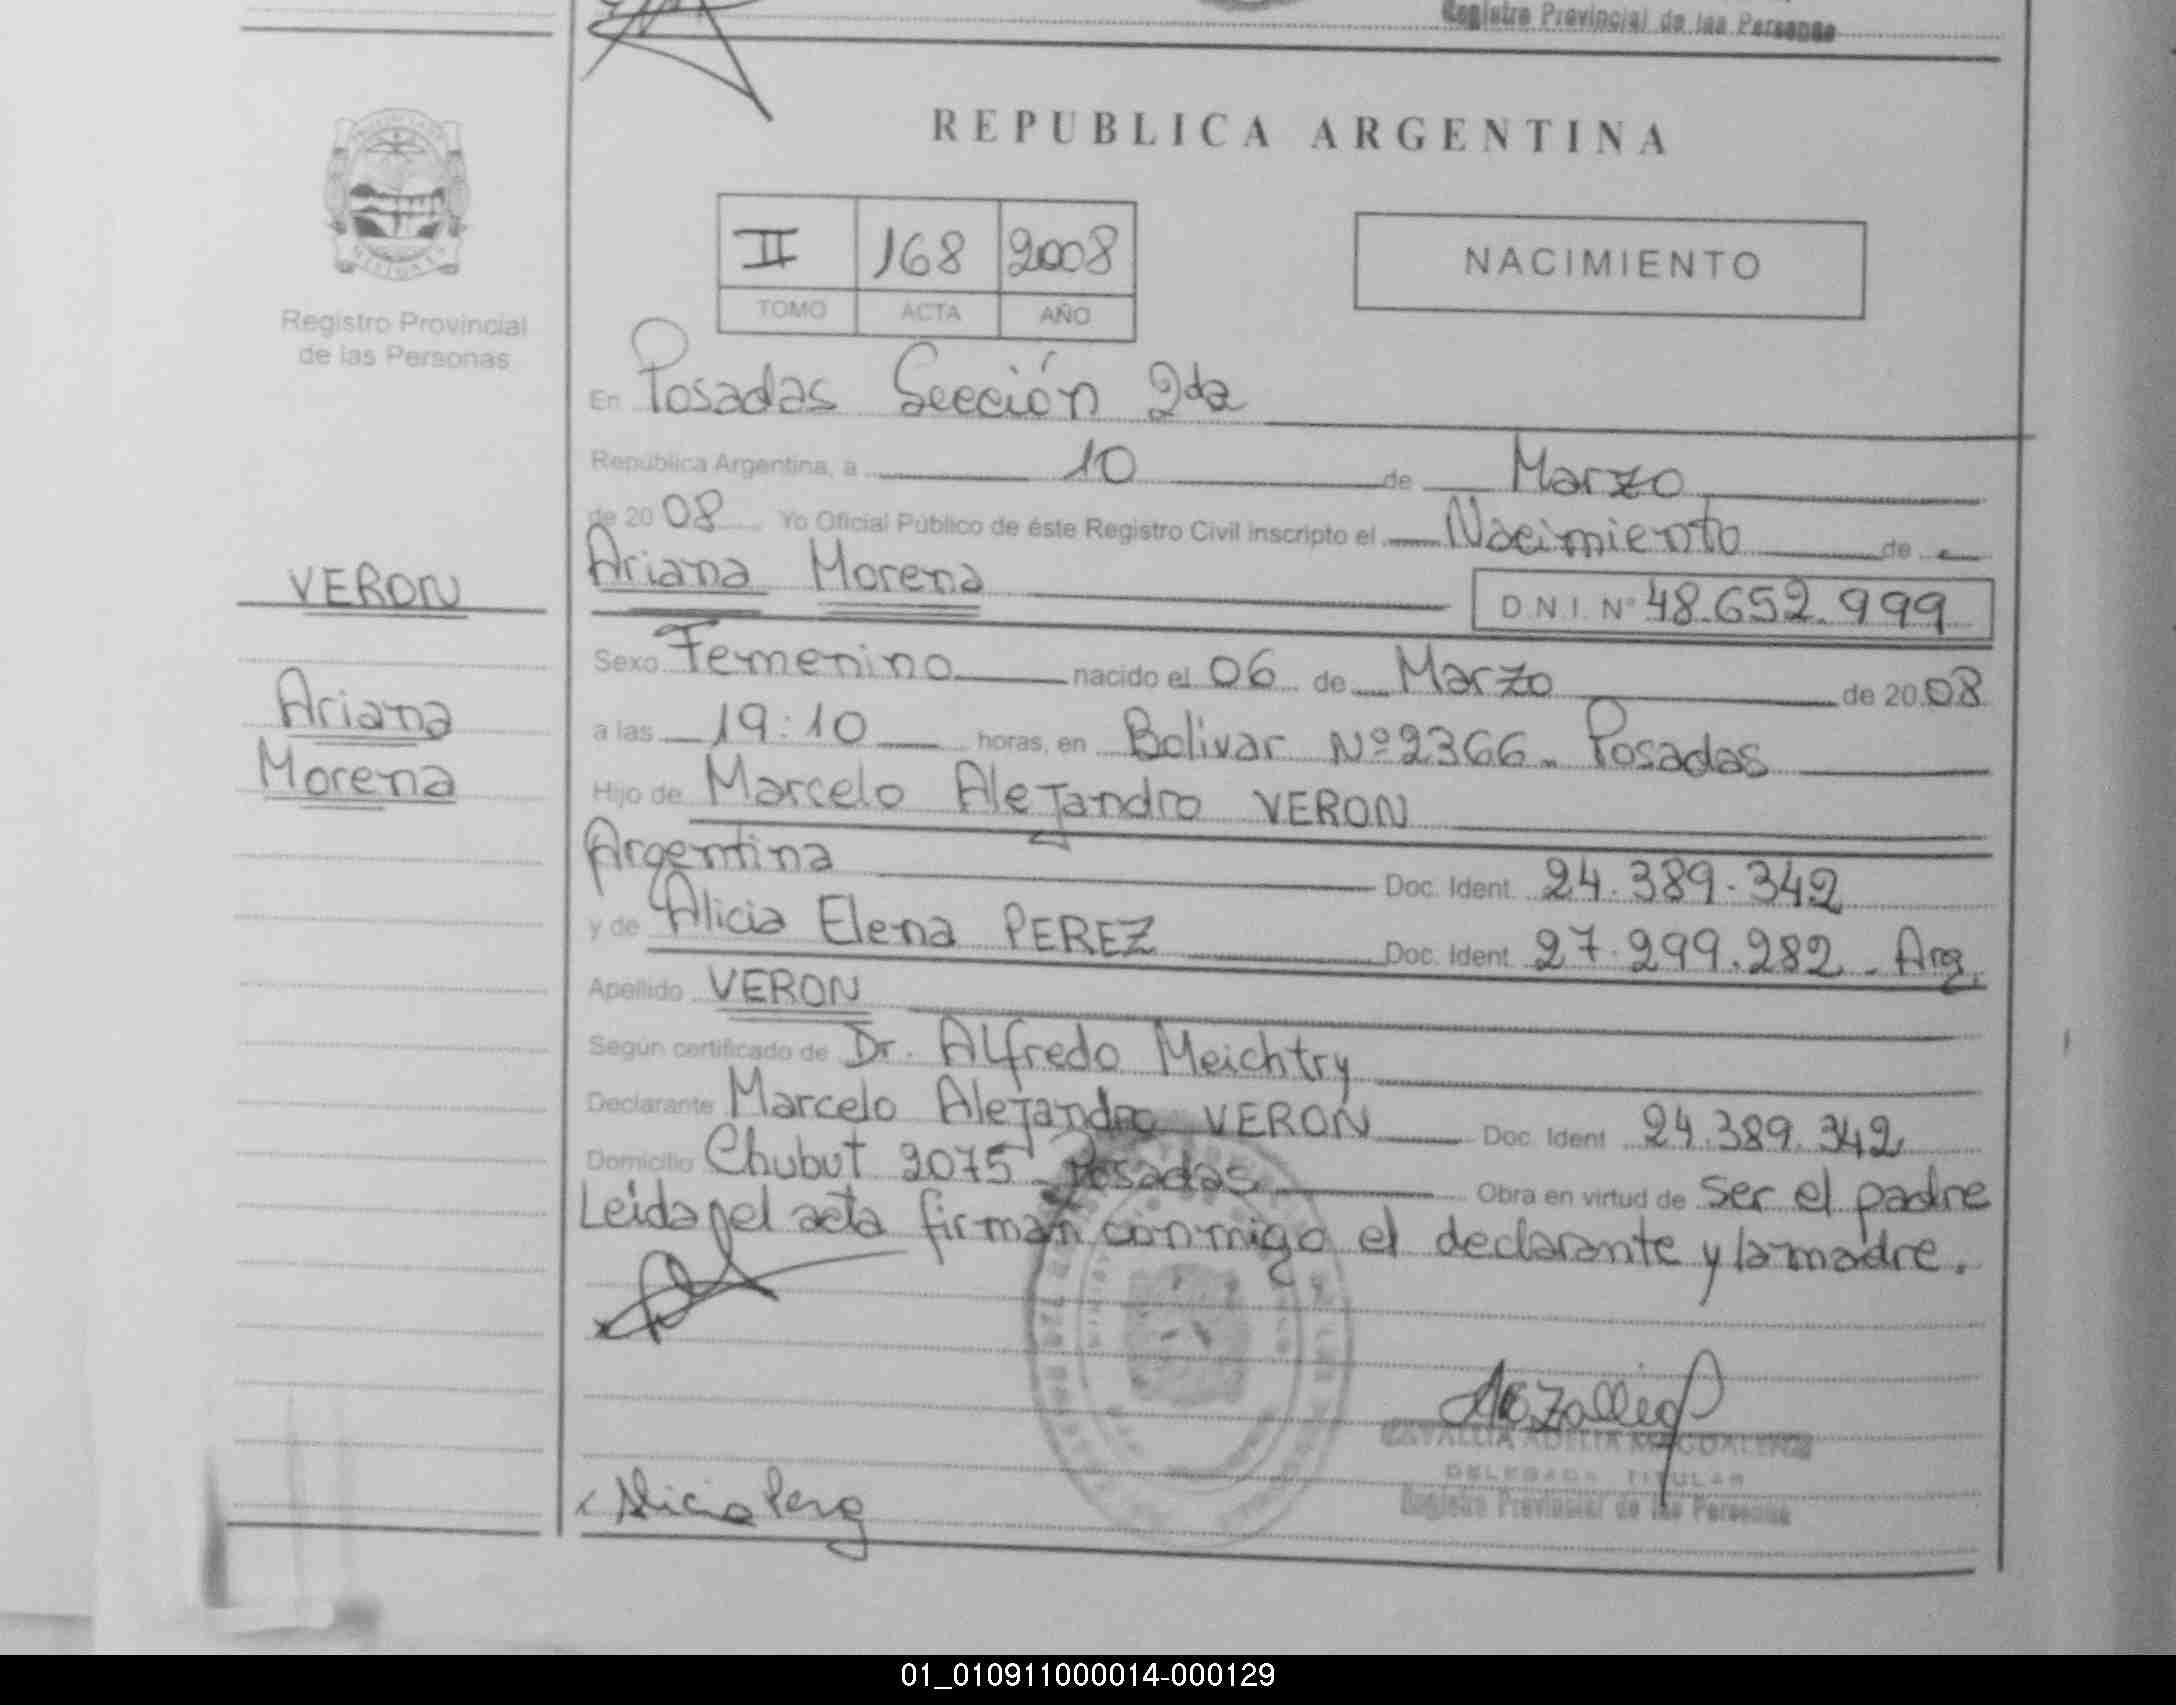 Registro Provincial de las Personas
REPUBLICA ARGENTINA
II 168 2008
TOMO ACTA AÑO
NACIMIENTO
Registro Provincial
de las Personas
VERON
Ariana
Morena
En Posadas Sección 2da
República Argentina, a 10 de Marzo
de 2008 Yo Oficial Público de éste Registro Civil inscripto el Nacimiento de
Ariana Morena D.N.I. Nº 48.652.999
Sexo Femenino nacido el 06 de Marzo de 2008
a las 19:10 horas, en Bolivar Nº 2366 - Posadas
Hijo de Marcelo Alejandro VERON
Argentina Doc. Ident. 24.389.342
y de Alicia Elena PEREZ Doc. Ident. 27.299.282 - Arg.
Apellido VERON
Según certificado de Dr. Alfredo Meichtry
Declarante Marcelo Alejandro VERON Doc. Ident 24.389.342
Domicilio Chubut 2075 - Posadas Obra en virtud de ser el padre
Leida el acta firman conmigo el declarante y la madre.
DELEGADA TITULAR
Registro Provincial de las Personas
Alicia Perez
01_010911000014-000129